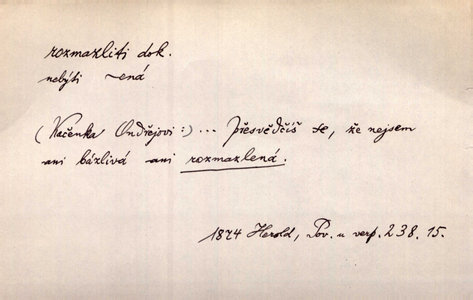 rozmazliti dok.
nebýti ~ená
(Kačenka Ondřejovi:)... přesvědčíš se, že nejsem
ani bázlivá ani rozmazlená.
1874 Herold, Pov. u verp. 238. 15.